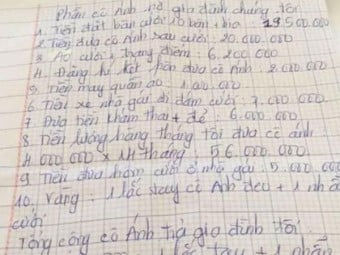 Phần cô Ánh nợ gia đình chúng tôi
1. Tiền đặt bàn cưới 10 bàn + bia : 19.500.000
2. Tiền đưa cô Ánh sau cưới : 20.000.000
3. Áo cưới + trang điểm : 6.200.000
4. Đăng kí kết hôn đưa cô Ánh : 2.000.000
5. Tiền may quần áo : 1.000.000
6. Tiền xe nhà gái đi đám cưới : 7.000.000
7. Đưa tiền khám thai + đẻ : 6.000.000
8. Tiền lương hàng tháng tôi đưa cô ánh
4.000.000 x 14 tháng : 56.000.000
9 Tiền đưa hôm cưới ở nhà gái : 5.000.000
10. Vàng : 1 lắc tay cô Ánh đeo + 1 nhẫ
cưới
Tổng cộng cô Ánh trả gia đình tôi
1 lắc tay + 1 nhẫn